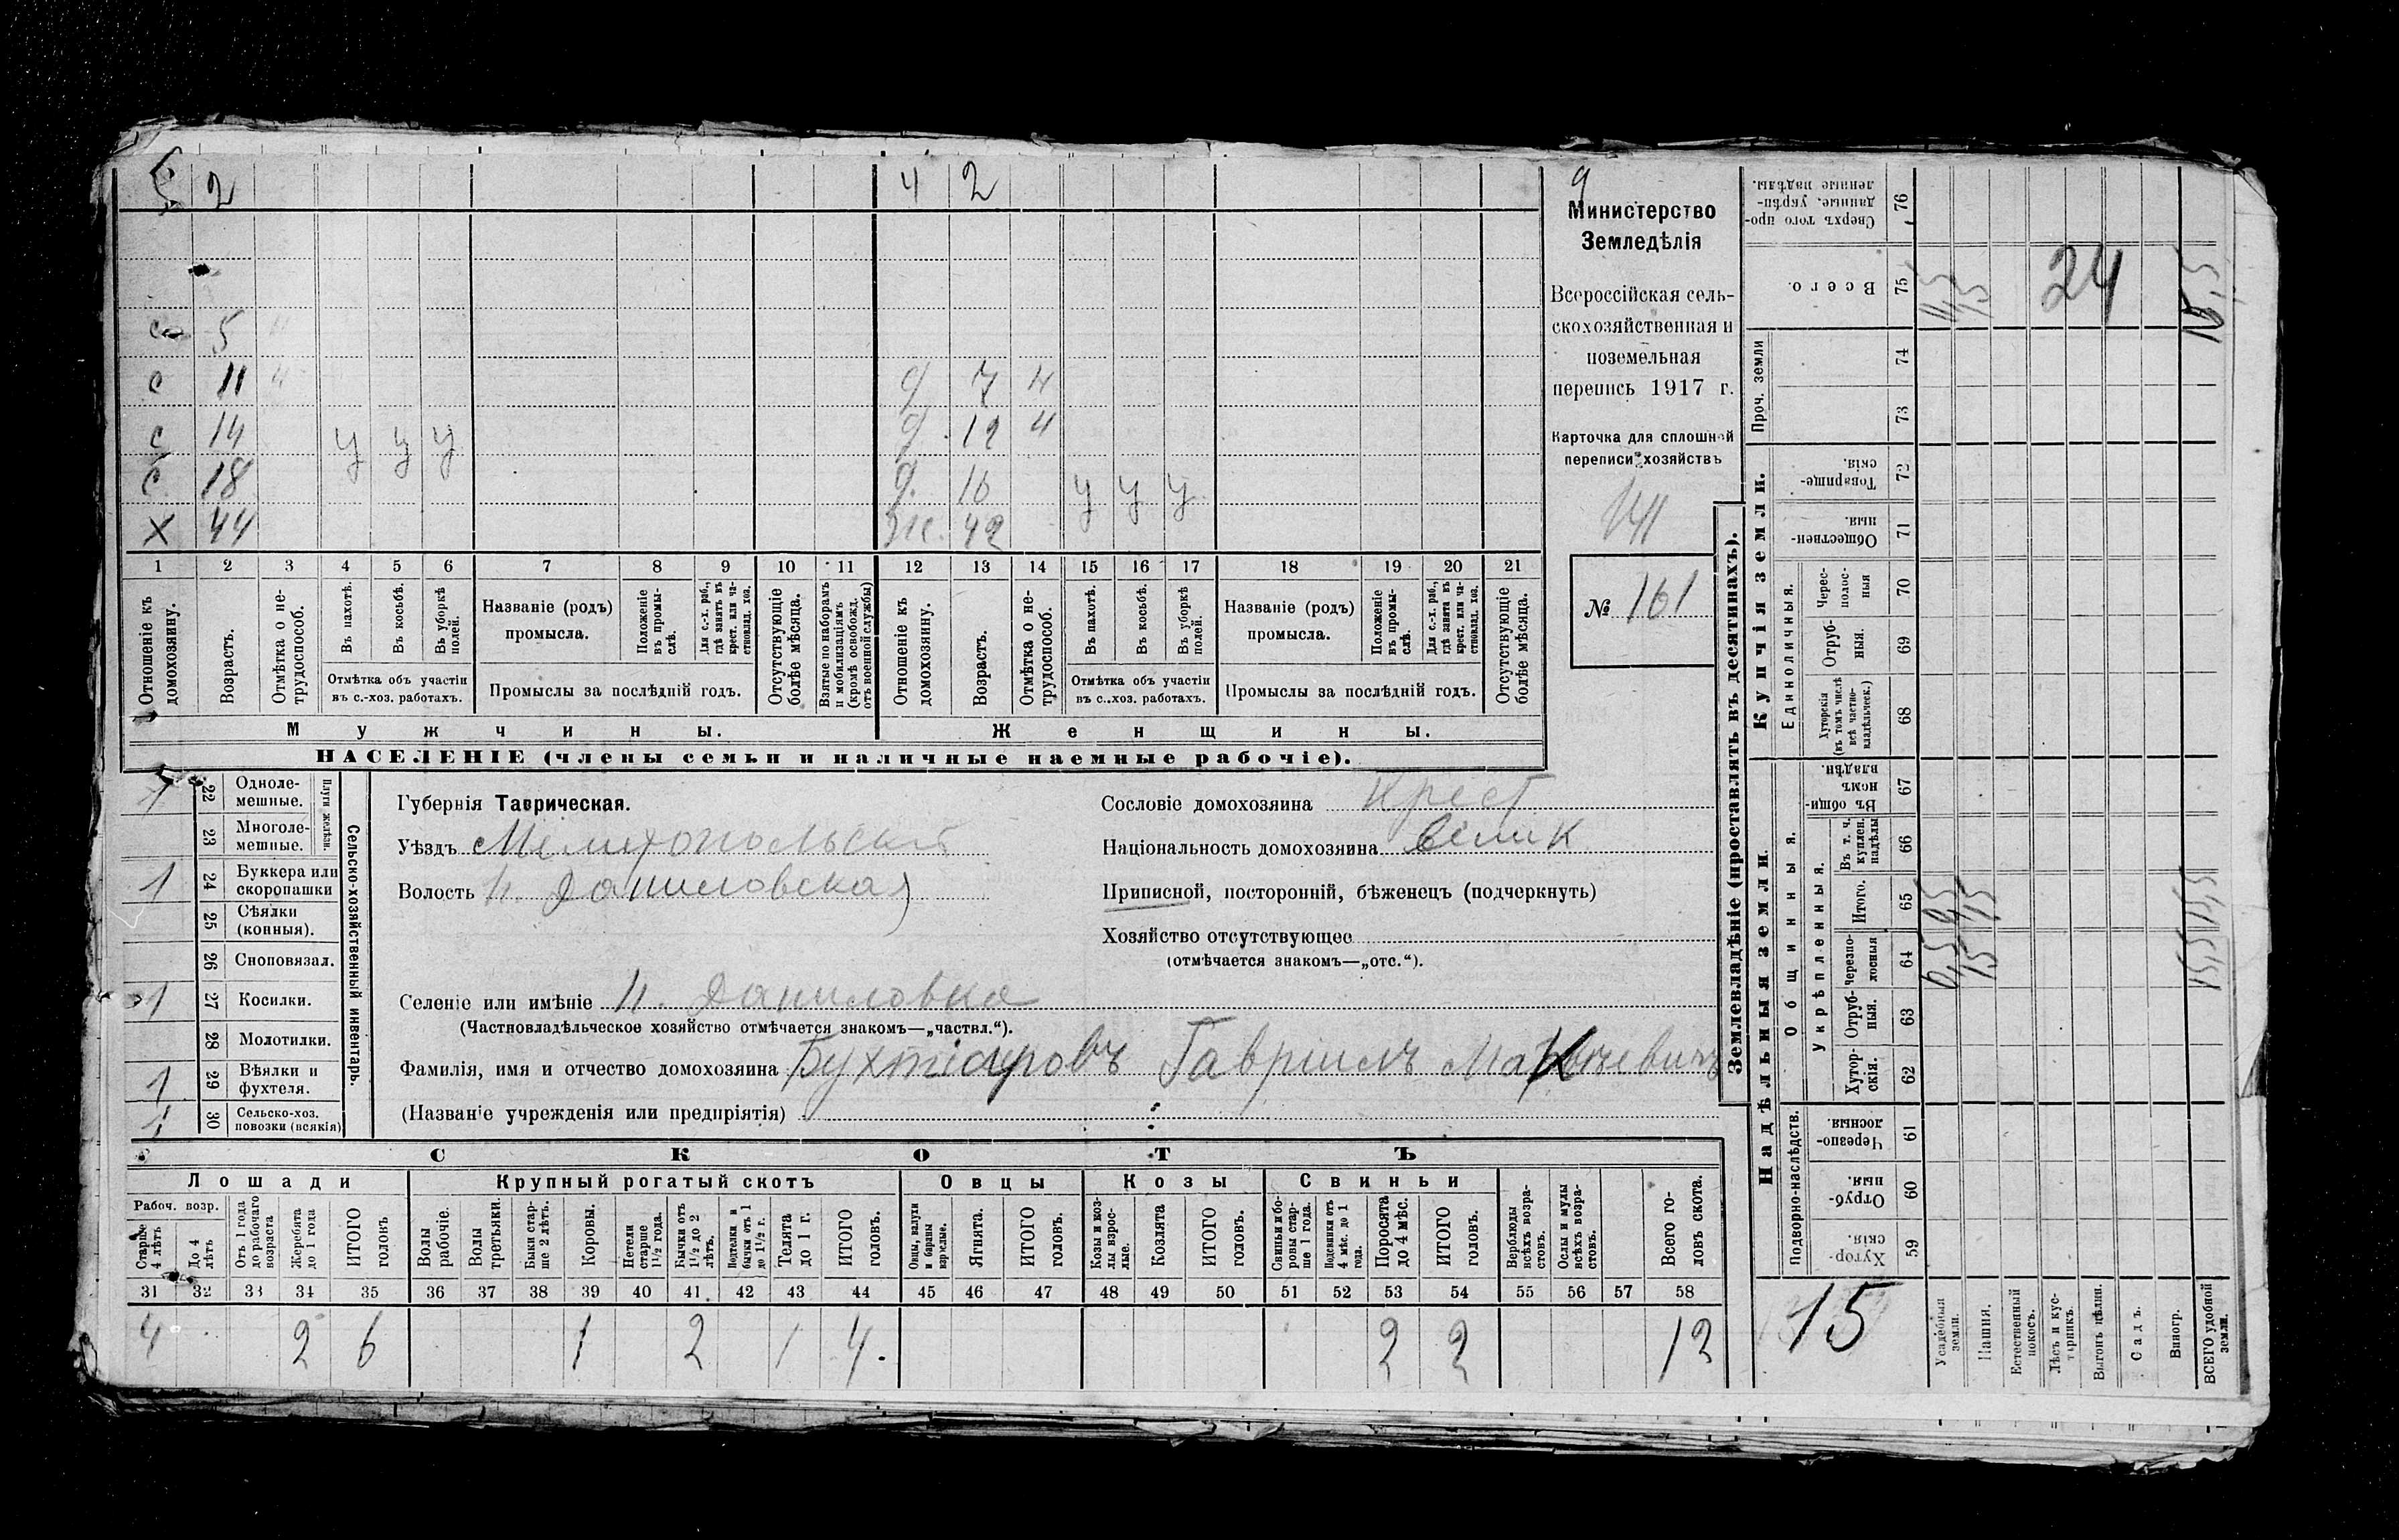 5 2 4 2
с 5
с 11 ч д 7 ч
с 14 у у у д. 12 ч
с 18 д. 16 у у у
х 44 ж. 42
1 2 3 4 5 6 7 8 9 10 11 12 13 14 15 16 17 18 19 20 21
Отношеніе къ домохозяину.
Возрастъ.
Отмѣтка о нетрудоспособ.
Въ пахотѣ.
Въ косьбѣ.
Въ уборкѣ полей.
Отмѣтка объ участіи въ с.-хоз. работахъ.
Названіе (родъ) промысла.
Положеніе въ промыслѣ.
Для с.-х. раб., гдѣ занятъ въ крест. или частновлад. хоз.
Промыслы за послѣдній годъ.
Отсутствующіе болѣе мѣсяца.
Взятые по наборамъ и мобилизаціямъ (кромѣ освобожд. отъ военной службы)
Отношеніе къ домохозяину.
Возрастъ.
Отмѣтка о нетрудоспособ.
Въ пахотѣ.
Въ косьбѣ.
Въ уборкѣ полей.
Отмѣтка объ участіи въ с.-хоз. работахъ.
Названіе (родъ) промысла.
Положеніе въ промыслѣ.
Для с.-х. раб., гдѣ занята въ крест. или частновлад. хоз.
Промыслы за послѣдній годъ.
Отсутствующіе болѣе мѣсяца.
Мужчины.
Женщины.
НАСЕЛЕНІЕ (члены семьи и наличные наемные рабочіе).
9
Министерство
Земледѣлія
Всероссійская сель-
скохозяйственная и
поземельная
перепись 1917 г.
Карточка для сплошной
переписи хозяйствъ
141
№ 161
22 Одноле-мешные.
23 Многоле-мешные.
Плуги желѣзн.
1 24 Буккера или скоропашки
25 Сѣялки (конныя).
26 Сноповязал.
1 27 Косилки.
28 Молотилки.
1 29 Вѣялки и фухтеля.
30 Сельско-хоз. повозки (всякія)
Сельско-хозяйственный инвентарь.
Губернія Таврическая.
Уѣздъ Мелитопольскій
Волость Н. Даниловская
Сословіе домохозяина Крест
Національность домохозяина велик
Приписной, посторонній, бѣженецъ (подчеркнуть)
Хозяйство отсутствующее
(отмѣчается знакомъ—„отс.“).
Селеніе или имѣніе Н. Даниловка
(Частновладѣльческое хозяйство отмѣчается знакомъ—„частвл.“).
Фамилія, имя и отчество домохозяина Бухтіаровъ Гавріилъ
(Названіе учрежденія или предпріятія)
СКОТЪ
Лошади
Крупный рогатый скотъ
Овцы
Козы
Свиньи
Рабоч. возр.
Старше 4 лѣтъ
До 4 лѣтъ
Отъ 1 года до рабочаго возраста
Жеребята до 1 года
ИТОГО головъ
Волы рабочіе.
Волы третьяки.
Быки старше 2 лѣтъ.
Коровы.
Нетели старше 1½ года.
Бычки отъ 1½ до 2 лѣтъ.
Подтелки и бычки отъ 1 до 1½ г.
Телята до 1 г.
ИТОГО головъ.
Овцы, валухи и бараны взрослые.
Ягнята.
ИТОГО головъ.
Козы и козлы взрослые.
Козлята
ИТОГО головъ.
Свиньи и боровы старше 1 года.
Подсвинки отъ 4 мѣс. до 1 года.
Поросята до 4 мѣс.
ИТОГО головъ.
Верблюды всѣхъ возрастовъ.
Ослы и мулы всѣхъ возрастовъ.
Всего головъ скота.
31 32 33 34 35 36 37 38 39 40 41 42 43 44 45 46 47 48 49 50 51 52 53 54 55 56 57 58
4 2 6 1 2 1 4. 2 2 12
Землевладѣніе (проставлять въ десятинахъ).
Надѣльныя земли.
Купчія земли.
Проч. земли
Подворно-наслѣдств.
Общинныя.
Укрѣпленныя.
Единоличныя.
Хуторскія 59
Отрубныя. 60
Черезполосныя. 61
Хуторскія. 62
Отрубныя. 63
Черезполосныя 64
Итого. 65
Въ т. ч. куплен. надѣлы 66
Въ общинномъ владѣн. 67
Хуторскія (въ томъ числѣ всѣ частновладѣльческ.) 68
Отрубныя. 69
Череспполосныя 70
Общественныя. 71
Товарищескія. 72
73
74
Всего. 75
Сверхъ того проданные, укрѣпленные надѣлы. 76
24
15
Усадебныя земли.
Пашня.
Естественный покосъ.
Лѣсъ и кустарникъ.
Выгонъ цѣлин.
Садъ.
Виногр.
ВСЕГО удобной земли.
15,5